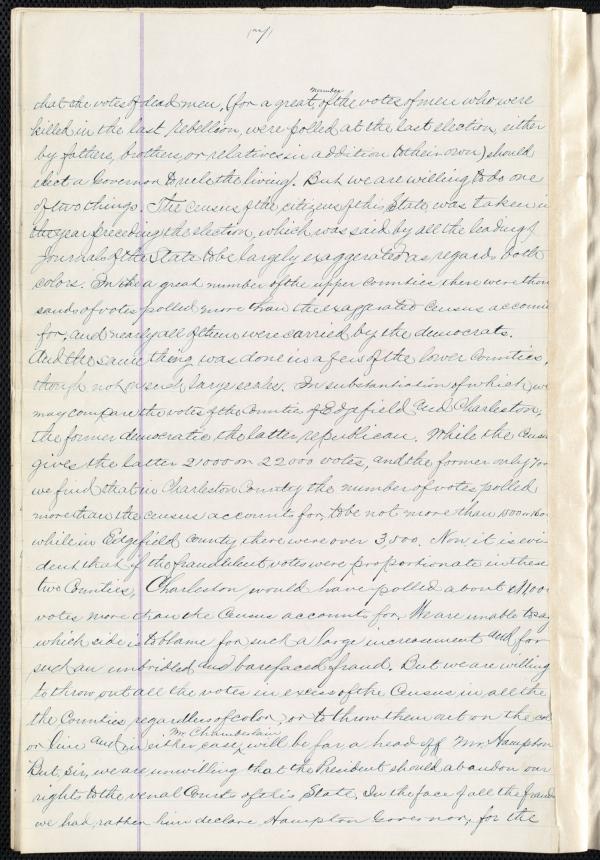 that the votes of dead men, (for a great number of the votes of men who were
killed in the last rebellion, were polled at the last election, either
by fathers, brothers, or relatives in addition to their own) should
elect a Governor to rule the living. But we are willing to do one
of two things. The census of the citizens of this State was taken in
the year preceding the election, which was said by all the leading
Journals of the State to be largely exaggerated as regards both
colors. In a great number of the upper counties there were thou
sands of votes polled more than the exaggerated census accounts
for, and nearly all of them were carried by the democrats.
And the same thing was done in a few of the lower Counties,
though not on such large scale. In substantiation of which we
may compare the votes of the Counties of Edgefield and Charleston,
the former democratic, the latter republican. While the Census
gives the latter 21000 or 22000 votes, and the former only
we find that in Charleston County the number of votes polled
more than the census accounts for, to be not more than
while in Edgefield County there were over 3,000. Now it is evi
dent that if the fraudulent votes were proportionate in these
two Counties, Charleston would have polled about
votes more than the Census accounts for. We are unable to say
which side is to blame for such a large increasement and for
such an unbridled and barefaced fraud. But we are willing
to throw out all the votes in excess of the Census in all the
the Counties regardless of color, or to throw them out on the col
or line and in either case, Mr. Chamberlain will be far a head off Mr. Hampton
But, Sir, we are unwilling that the President should abandon our
rights to the venal Courts of this State. In the face of all the frauds
we had rather him declare Hampton Governor, for the